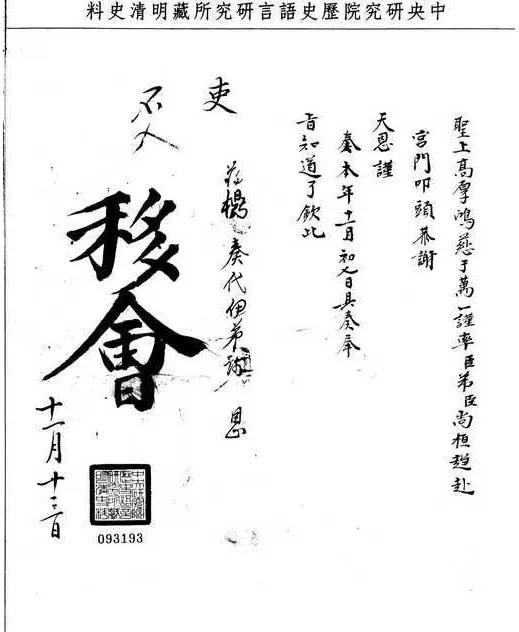 中央研究院歷史語言研究所藏明清史料
聖上高厚鴻慈于萬一謹率臣弟臣尚桓趨赴
宮門叩頭恭謝
天恩謹
奏本年十一月初七日具奏奉
旨知道了欽此
吏
奏代伊弟謝恩
移會
十一月十二日
093193